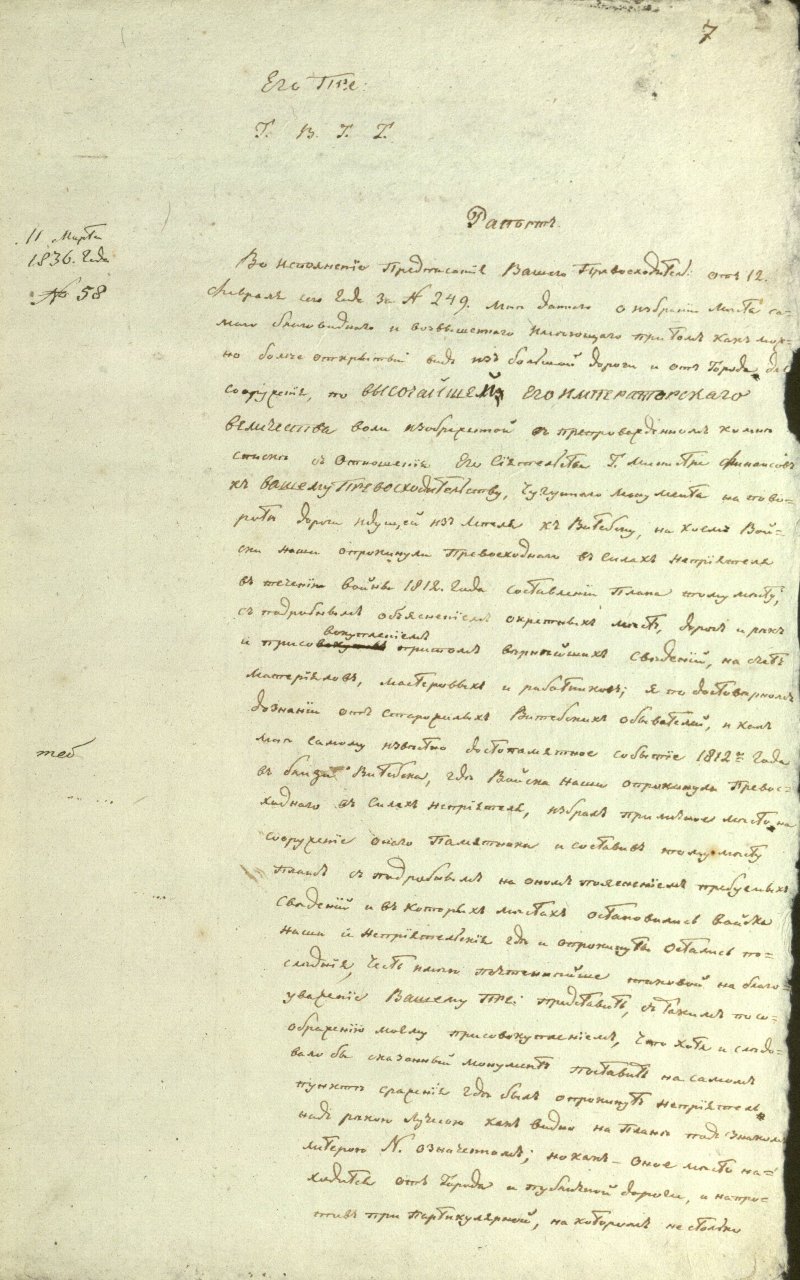 7
Его Пре:
Г. В. Г. Г.
Рапортъ
11 Марта
1836. Года
№ 58
Во исполненіе Предписанія Вашего Превосходител: отъ 12.
Февраля сего Года за № 249. мнѣ даннаго о избраніи мѣста са-
маго благовиднаго и возвышеннаго имѣющаго притомъ какъ мож-
но болѣе открытый видъ изъ большой дороги и отъ Города для
сооруженія, по ВЫСОЧАЙШЕЙ ЕГО ИМПЕРАТОРСКАГО
ВЕЛИЧЕСТВА воли изображенной въ препровожденномъ копію
списку съ Отношенія Его Сіятельства Г. Министра Финансовъ
къ ВАШЕМУ ПРЕВОСХОДИТЕЛЬСТВУ, Чугуннаго монумента на пово-
ротѣ дороги идущей изъ мѣстъ къ Витебску, на коемъ Вой-
ски наши опрокинули Превосходнаго въ силахъ непріятеля
въ теченіи войны 1812. Года составленіи Плана тому мѣсту,
съ подробнымъ объясненіемъ окрестныхъ мѣстъ, дорогъ и рѣкъ
вокупленіемъ
и присо притомъ вѣрнѣйшихъ свѣденій, на счетъ
матеріяловъ, мастеровыхъ и работниковъ; я по достовѣрномъ
дознаніи отъ старожилыхъ Витебскихъ обывателей, и какъ
мнѣ самому извѣстно достопамятное событіе 1812го Года
въ близи Витебска, гдѣ Войска наши опрокинули Превос-
ходнаго въ силахъ непріятеля, избралъ приличное мѣсто на
сооруженіе онаго Памятника и составивъ тому мѣсту
Планъ съ подробнымъ на ономъ поясненіемъ требуемыхъ
Свѣденій и въ которыхъ мѣстахъ остановились войска
наши и непріятельскія гдѣ и опрокинуты остались по-
слѣднія, честь имѣю почтеннѣйше таковой на благо-
уваженіе Вашему Пре: представить, съ такимъ по со-
ображенію моему присовокупленіемъ, что хотя и слѣдо-
вало бы сказанный монументъ поставить на самомъ
пунктѣ сраженія гдѣ былъ опрокинутъ непріятель,
надъ рѣкою Лучесою какъ видно на Планѣ подъ знакомъ
литерою N. означеннымъ; но какъ оное мѣсто на-
ходится отъ Города и публичной дороги, и напро-
тивъ при партикулярной, на которомъ не столько